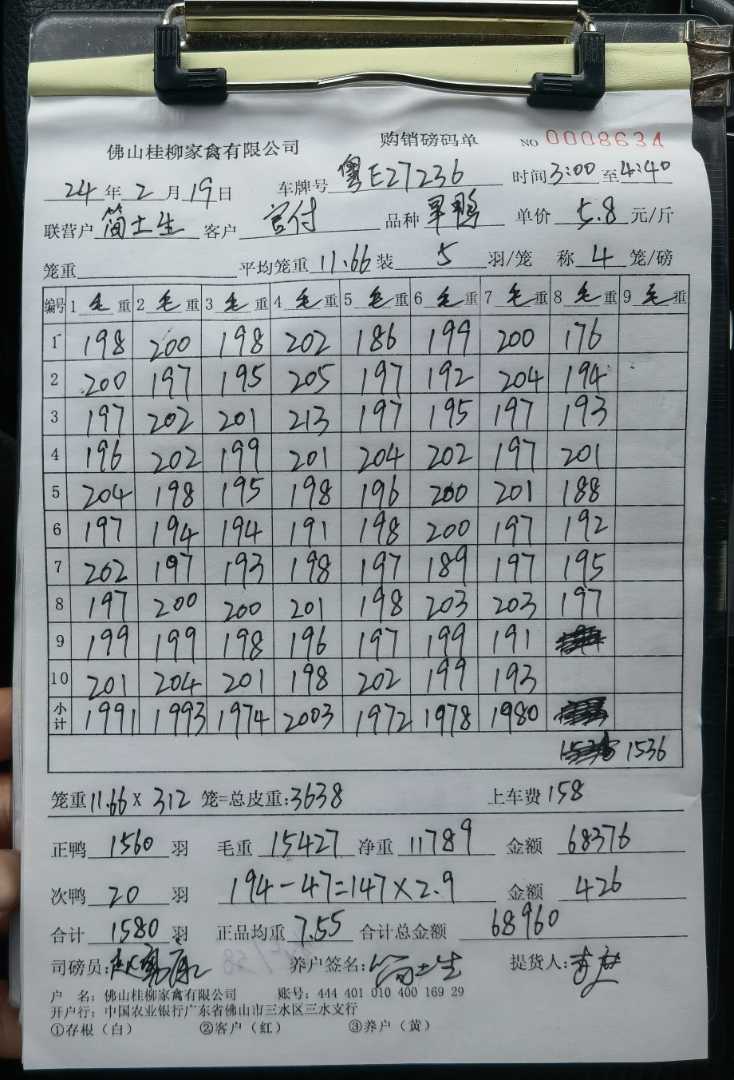 佛山桂柳家禽有限公司 购销磅码单 NO 0008634
24年2月19日 车牌号 粤E27236 时间3:00至4:40
联营户 简士生 客户 官付 品种 旱鸭 单价 5.8 元/斤
笼重 平均笼重 11.66 装 5 羽/笼 称 4 笼/磅
编号 1 毛 重 2 毛 重 3 毛 重 4 毛 重 5 毛 重 6 毛 重 7 毛 重 8 毛 重 9 毛 重
1 198 200 198 202 186 199 200 176
2 200 197 195 205 197 192 204 194
3 197 202 201 213 197 195 197 193
4 196 202 199 201 204 202 197 201
5 204 198 195 198 196 200 201 188
6 197 194 194 191 198 200 197 192
7 202 197 193 198 197 189 197 195
8 197 200 200 201 198 203 203 197
9 199 199 198 196 197 199 191
10 201 204 201 198 202 199 193
小计 1991 1993 1974 2003 1972 1978 1980
1536
笼重11.66 X 312 笼=总皮重:3638 上车费 158
正鸭 1560 羽 毛重 15427 净重 11789 金额 68376
次鸭 20 羽 194-47=147×2.9 金额 426
合计 1580 羽 正品均重 7.55 合计总金额 68960
司磅员: 养户签名: 简士生 提货人:
户 名: 佛山桂柳家禽有限公司 账号: 444 401 010 400 169 29
开户行: 中国农业银行广东省佛山市三水区三水支行
①存根(白) ②客户(红) ③养户(黄)